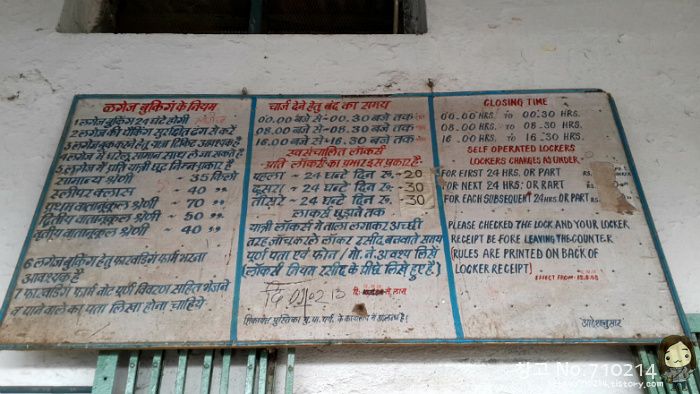 लगेज बुकिंग के नियम
1 लगेज बुकिंग 24 घंटे होगी
2 लगेज की पैकिंग सुरक्षित ढंग से करें
3 लगेज बुक करने हेतु यात्रा टिकिट आवश्यक है
4 लगेज में घरेलू सामान साथ ले जा सकते है
5 लगेज में प्रति यात्री छूट निम्न प्रकार है
सामान्य श्रेणी ~ 35 किलो
स्लीपर क्लास ~ 40 ,,
प्रथम वातानुकूल श्रेणी ~ 70 ,,
द्वितीय वातानुकूल श्रेणी ~ 50 ,,
तृतीय वातानुकूल श्रेणी ~ 40 ,,
6 लगेज बुकिंग हेतु फारवर्डिंग फार्म भरना
आवश्यक है
7 फारवर्डिंग फार्म नोट पूर्ण विवरण सहित भेजने
व पाने वाले का पता लिखा होना चाहिये
चार्ज देने हेतु बंद का समय
00.00 बजे से - 00.30 बजे तक
08.00 बजे से - 08.30 बजे तक
16.00 बजे से - 16.30 बजे तक
स्वसंचालित लॉकर्स
प्रति लॉकर्स का प्रभार इस प्रकार है:
पहला ~ 24 घन्टे दिन रू. ~ 20
दूसरा ~ 24 घन्टे दिन रू. ~ 30
तीसरे ~ 24 घन्टे दिन रू. ~ 30
लॉकर्स छुड़ाने तक
यात्री लॉकर्स में ताला लगाकर अच्छी
तरह जाँच करले लॉकर रसीद बनवाते समय
पूर्ण पता एवं फोन / मो. नं. अवश्य लिखें
(लॉकर्स नियम रसीद के नीचे लिखे हुए है)
दि 01.02.13
CLOSING TIME
00.00 HRS. TO 00.30 HRS.
08.00 HRS. TO 08.30 HRS.
16.00 HRS. TO 16.30 HRS.
SELF OPERATED LOCKERS
LOCKERS CHANGES AS UNDER
FOR FIRST 24 HRS. OR PART
FOR NEXT 24 HRS. OR RART
FOR EACH SUBSEQUENT 24 HRS. OR PART
PLEASE CHECKED THE LOCK AND YOUR LOCKER
RECEIPT BE FORE LEAVING THE COUNTER
(RULES ARE PRINTED ON BACK OF
LOCKER RECEIPT)
आदेशानुसार
창고 No.710214
http://710214.tistory.com